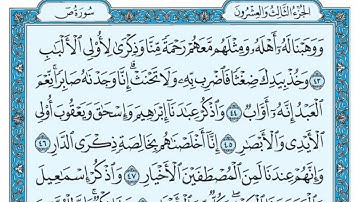 سُورَةُ صٓ
الجُزْءُ الثَّالِثُ وَالعِشْرُونَ
وَوَهَبْنَا لَهُۥٓ أَهْلَهُۥ وَمِثْلَهُم مَّعَهُمْ رَحْمَةً مِّنَّا وَذِكْرَىٰ لِأُو۟لِى ٱلْأَلْبَٰبِ
٤٣ وَخُذْ بِيَدِكَ ضِغْثًا فَٱضْرِب بِّهِۦ وَلَا تَحْنَثْ ۗ إِنَّا وَجَدْنَٰهُ صَابِرًا ۚ نِّعْمَ
ٱلْعَبْدُ ۖ إِنَّهُۥٓ أَوَّابٌ ٤٤ وَٱذْكُرْ عِبَٰدَنَآ إِبْرَٰهِيمَ وَإِسْحَٰقَ وَيَعْقُوبَ أُو۟لِى
ٱلْأَيْدِى وَٱلْأَبْصَٰرِ ٤٥ إِنَّآ أَخْلَصْنَٰهُم بِخَالِصَةٍ ذِكْرَى ٱلدَّارِ ٤٦
وَإِنَّهُمْ عِندَنَا لَمِنَ ٱلْمُصْطَفَيْنَ ٱلْأَخْيَارِ ٤٧ وَٱذْكُرْ إِسْمَٰعِيلَ